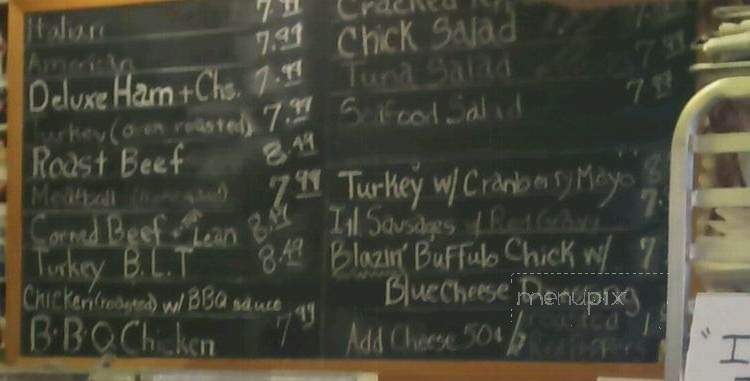 Italian 7.99
American 7.99
Deluxe Ham + Chs. 7.99
Turkey (oven roasted) 7.99
Roast Beef 8.49
Meatball 7.99
Corned Beef Lean 8.49
Turkey B.L.T 8.49
Chicken (roasted) w/ BBQ sauce
B.B.Q Chicken 7.99
Cracked
Chick Salad
Tuna Salad 7.99
Seafood Salad 7.99
Turkey w/ Cranberry Mayo
Itl Sausages
Blazin' Buffulo Chick w/ 7
Blue Cheese
Add Cheese 50¢
menupix
"I